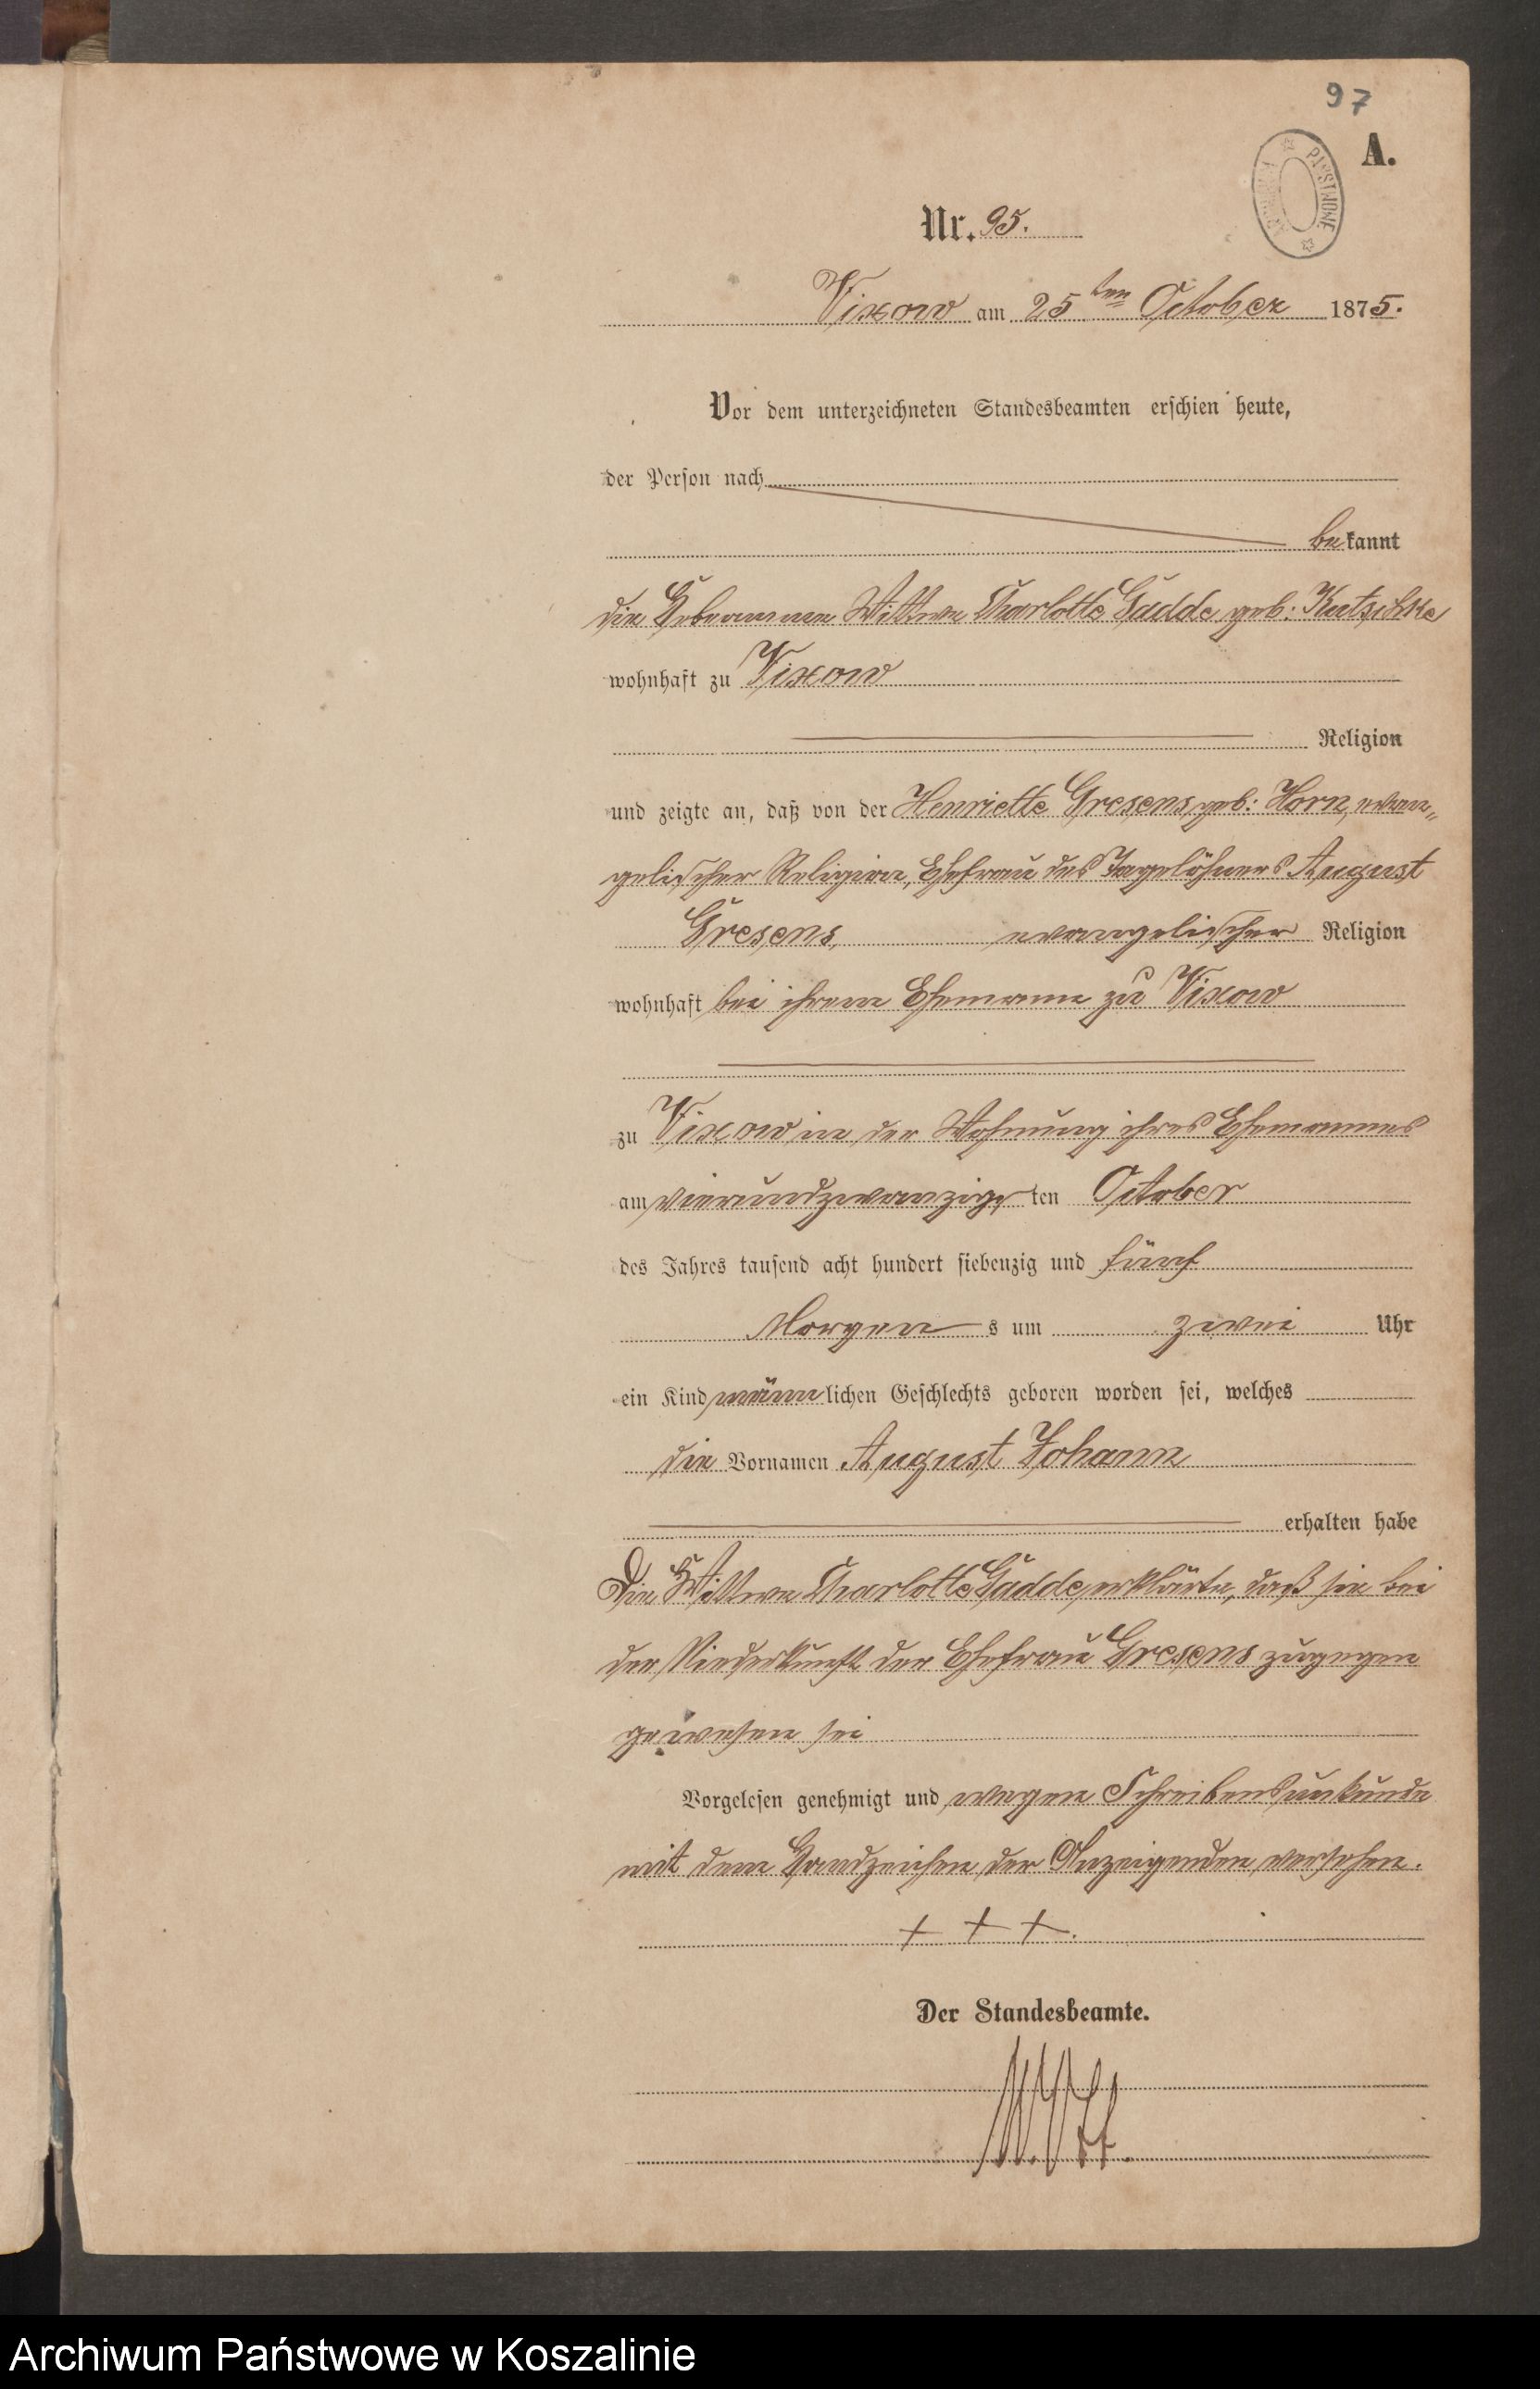 97
A.
ARCHIWUM PAŃSTWOWE
Nr. 95.
Vixow am 25ten October 1875.
Vor dem unterzeichneten Standesbeamten erschien heute,
der Person nach
bekannt
die Hebeamme Wittwe Charlotte Gädde geb: Kutschke
wohnhaft zu Vixow
Religion
und zeigte an, daß von der Henriette Gresens geb: Horn, evan„
gelischer Religion, Ehefrau des Tagelöhners August
Gresens, evangelischer Religion
wohnhaft bei ihrem Ehemanne zu Vixow
zu Vixow in der Wohnung ihres Ehemannes
am vierundzwanzigsten October
des Jahres tausend acht hundert siebenzig und fünf
Morgens um zwei Uhr
ein Kind männlichen Geschlechts geboren worden sei, welches
die Vornamen August Johann
erhalten habe
Die Wittwe Charlotte Gädde erklärte, daß sie bei
der Niederkunft der Ehefrau Gresens zugegen
gewesen sei
Vorgelesen genehmigt und wegen Schreibensunkunde
mit dem Handzeichen der Anzeigenden versehen.
+ + +.
Der Standesbeamte.
Archiwum Państwowe w Koszalinie